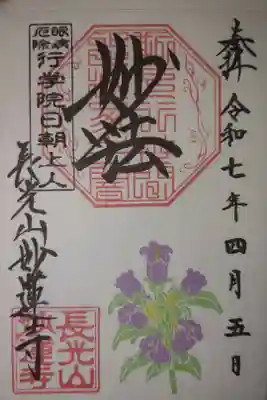 奉拝 令和七年四月五日
妙法
眼病
厄除
行学院日朝上人
長光山妙蓮寺
長光山
妙蓮寺